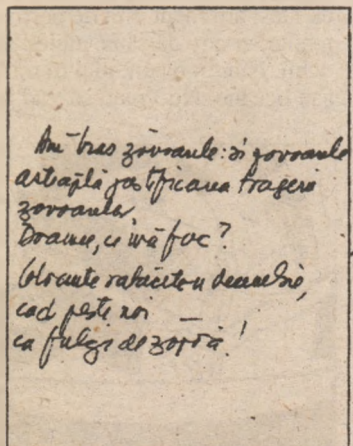 Am tras zăvoarele: și zăvoarele
așteaptă justificarea tragerii
zăvoarelor.
Doamne, ce mă fac?
Cuvinte rătăcite-n decembrie,
cad peste noi
ca fulgi de zăpadă!